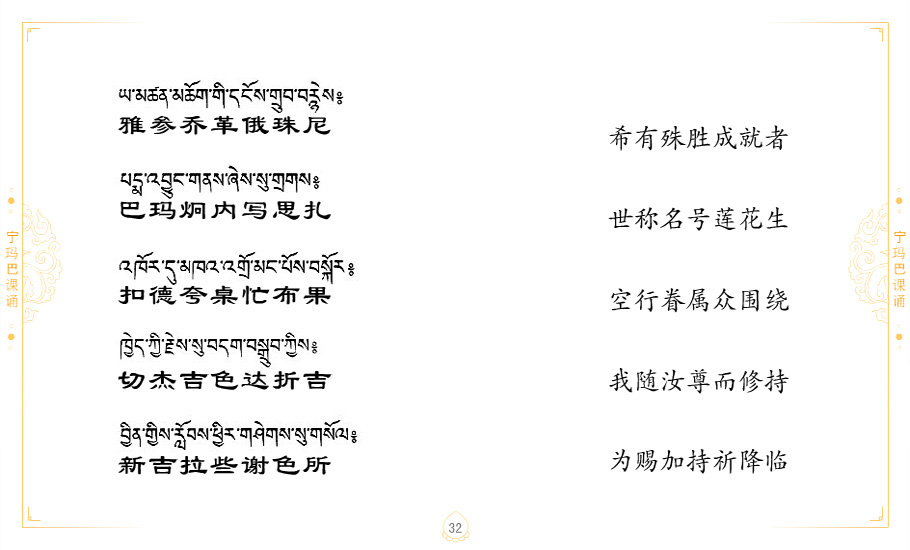 ཡ་མཚན་མཆོག་གི་དངོས་གྲུབ་བརྙེས༔
雅参乔革俄珠尼
希有殊胜成就者
པདྨ་འབྱུང་གནས་ཞེས་སུ་གྲགས༔
巴玛炯内写思扎
世称名号莲花生
འཁོར་དུ་མཁའ་འགྲོ་མང་པོས་བསྐོར༔
扣德夸桌忙布果
空行眷属众围绕
ཁྱེད་ཀྱི་རྗེས་སུ་བདག་བསྒྲུབ་ཀྱིས༔
切杰吉色达折吉
我随汝尊而修持
བྱིན་གྱིས་རློབས་ཕྱིར་གཤེགས་སུ་གསོལ༔
新吉拉些谢色所
为赐加持祈降临
宁玛巴课诵
宁玛巴课诵
32